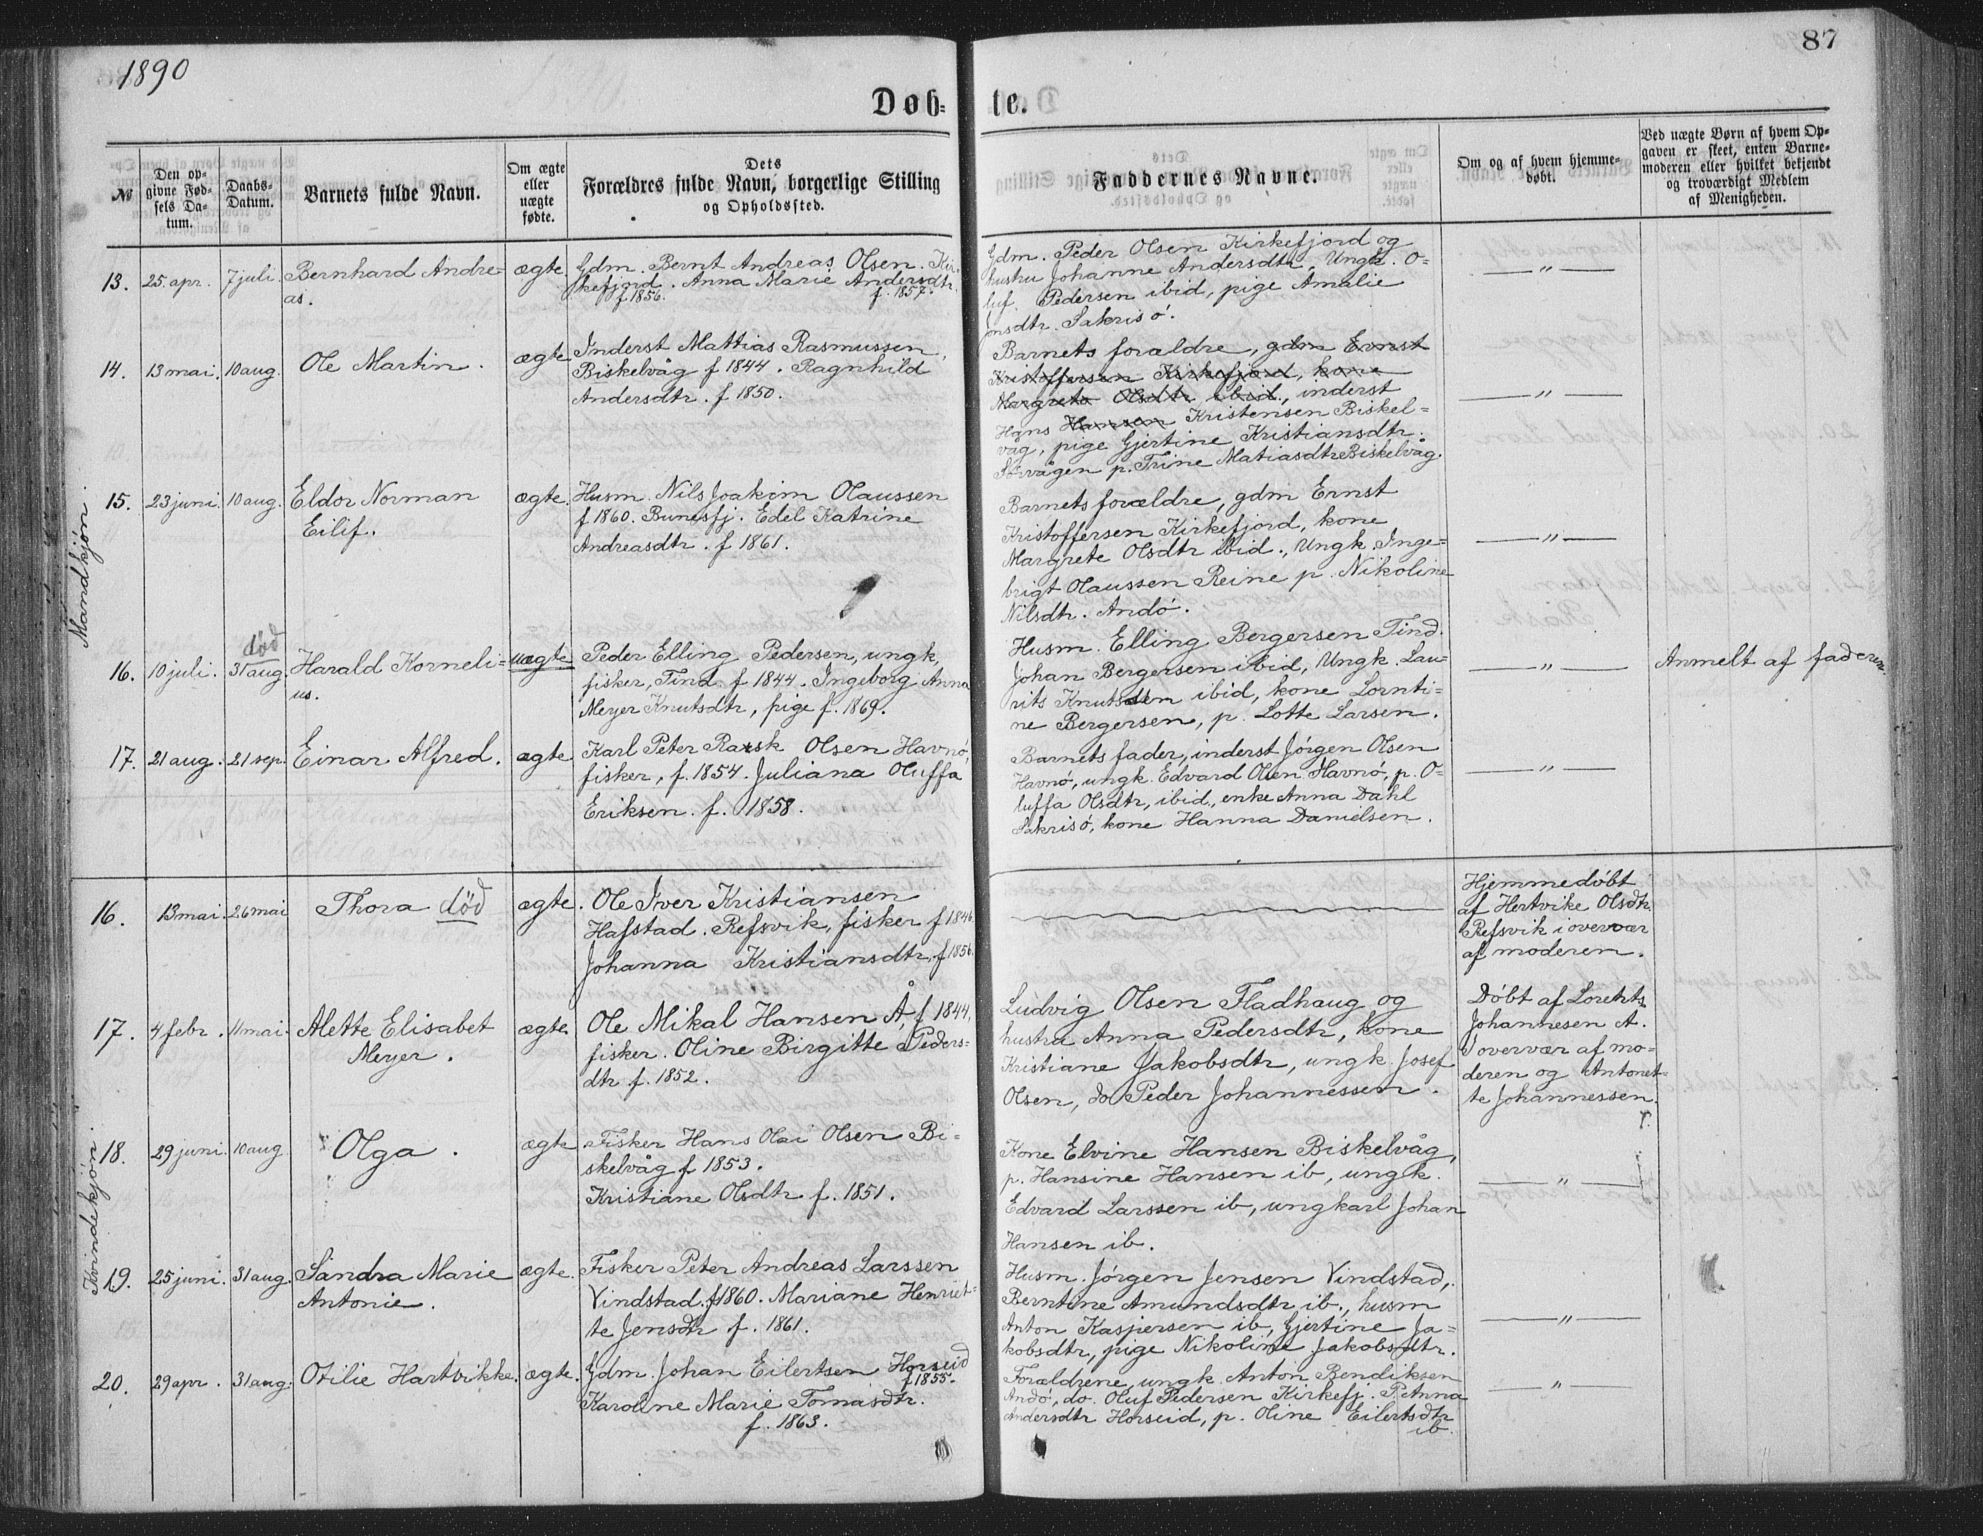 1890
87
Døb-
te.
№
Den op-
givne Fød-
sels Da-
tum.
Daabs-
Datum.
Barnets fulde Navn.
Om ægte
eller
nægte
fødte.
Dets
Forældres fulde Navn, borgerlige Stilling
og Opholdssted.
Faddernes Navne.
Om og af hvem hjemme-
døbt.
Ved nægte Børn af hvem Op-
gaven er skeet, enten Barne-
moderen eller hvilket bekjendt
og troværdigt Medlem
af Menigheden.
Mandkjøn.
13. 25 apr. 7 juli Bernhard Andre-
as.
ægte.
Gdm. Bernt Andreas Olsen. Kir-
kefjord. Anna Marie Andersdtr.
f. 1856. f. 1857.
Gdm. Peder Olsen Kirkefjord og
hustru Johanne Andersdtr. Ungk. O-
luf Pedersen ibid, pige Amalie
Jnsdtr. Sakrisö.
— " —
14. 13 mai. 10 aug. Ole Martin.
ægte
Inderst Mattias Rasmussen,
Biskelvåg f 1844. Ragnhild
Andersdtr. f 1850.
Barnets forældre, gdm Ernst
Kristoffersen Kirkefjord, kone
Margrete Olsdtr ibid., inderst
Hans Hansen Kristensen Biskel-
våg, pige Gjertine Kristiansdtr.
Sörvågen p. Trine Matiasdtr Biskelvåg.
— " —
15. 23 juni 10 aug. Eldor Norman
Eilif.
ægte.
Husm. Nils Joakim Olaussen
f 1860. Bunesfj. Edel Katrine
Andreasdtr. f 1861.
Barnets forældre, gdm Ernst
Kristoffersen Kirkefjord, kone
Margrete Olsdtr ibid., Ungk. Inge-
brigt Olaussen Reine p. Nikoline
Nilsdtr. Andö.
— " —
död
16. 10 juli. 31 aug. Harald Korneli-
us.
uægte
Peder Elling Pedersen, ungk,
fisker, Tind. f 1844. Ingeborg Anna
Meyer Knutsdtr, pige f. 1869.
Husm. Elling Bergersen Tind.
Johan Bergersen ibid, Ungk. Lau-
rits Knutsen ibid, kone Lornti-
ne Bergersen, p. Lotte Larsen.
— " —
Anmelt af faderen
17. 21 aug. 21 sep. Einar Alfred.
ægte
Karl Peter Rask Olsen Havnö,
fisker, f. 1854. Juliana Oluffa
Eriksen. f. 1858.
Barnets fader, inderst Jörgen Olsen
Havnö, ungk. Edvard Olsen Havnö, p. O-
luffa Olsdtr, ibid., enke Anna Dahl
Sakrisö, kone Hanna Danielsen.
— " —
Kvindekjön.
16. 13 mai. 26 mai Thora död
ægte.
Ole Iver Kristiansen
Hafstad. Refsvik, fisker f 1846.
Johanna Kristiansdtr. f 1856.
Hjemmedöbt
af Hertvike Olsdtr.
Refsvik i overvær
af moderen.
17. 4 febr. 11 mai. Alette Elisabet
Meyer.
ægte.
Ole Mikal Hansen Å, f 1844,
fisker. Oline Birgitte Peders-
dtr f. 1852.
Ludvig Olsen Fladhaug og
hustru Anna Pedersdtr, kone
Kristiane Jakobsdtr, ungk. Josef
Olsen, do Peder Johannessen.
Döbt af Lorents
Johannesen A.
I overvær af mo-
deren og Antonet-
te Johannessen.
18. 29 juni. 10 aug Olga.
ægte
Fisker Hans Olai Olsen Bi-
skelvåg f 1853.
Kristiane Olsdtr f. 1851.
Kone Elvine Hansen Biskelvåg,
p. Hansine Hansen ib, ungk.
Edvard Larssen ib, ungkarl Johan
Hansen ib.
— " —
19. 25 juni. 31 aug. Sandra Marie
Antonie.
ægte.
Fisker Peter Andreas Larssen
Vindstad. f 1860. Mariane Henriet-
te Jensdtr f. 1861.
Husm. Jörgen Jensen Vindstad,
Berntine Amundsdtr ib., husm
Anton Kaspersen ib, Gjertine Ja-
kobsdtr, pige Nikoline Jakobsdtr.
— " —
20. 29 apr. 31 aug. Otilie Hartvikke.
ægte.
Gdm. Johan Eilertsen Horseid
f 1855.
Karoline Marie Tomasdtr.
f. 1863.
Forældrene, ungk. Anton Bendiksen
Andö, do. Oluf Pedersen Kirkefj. P. Anna
Andersdtr Horseid, p. Oline Eilertsdtr
ib.
— " —